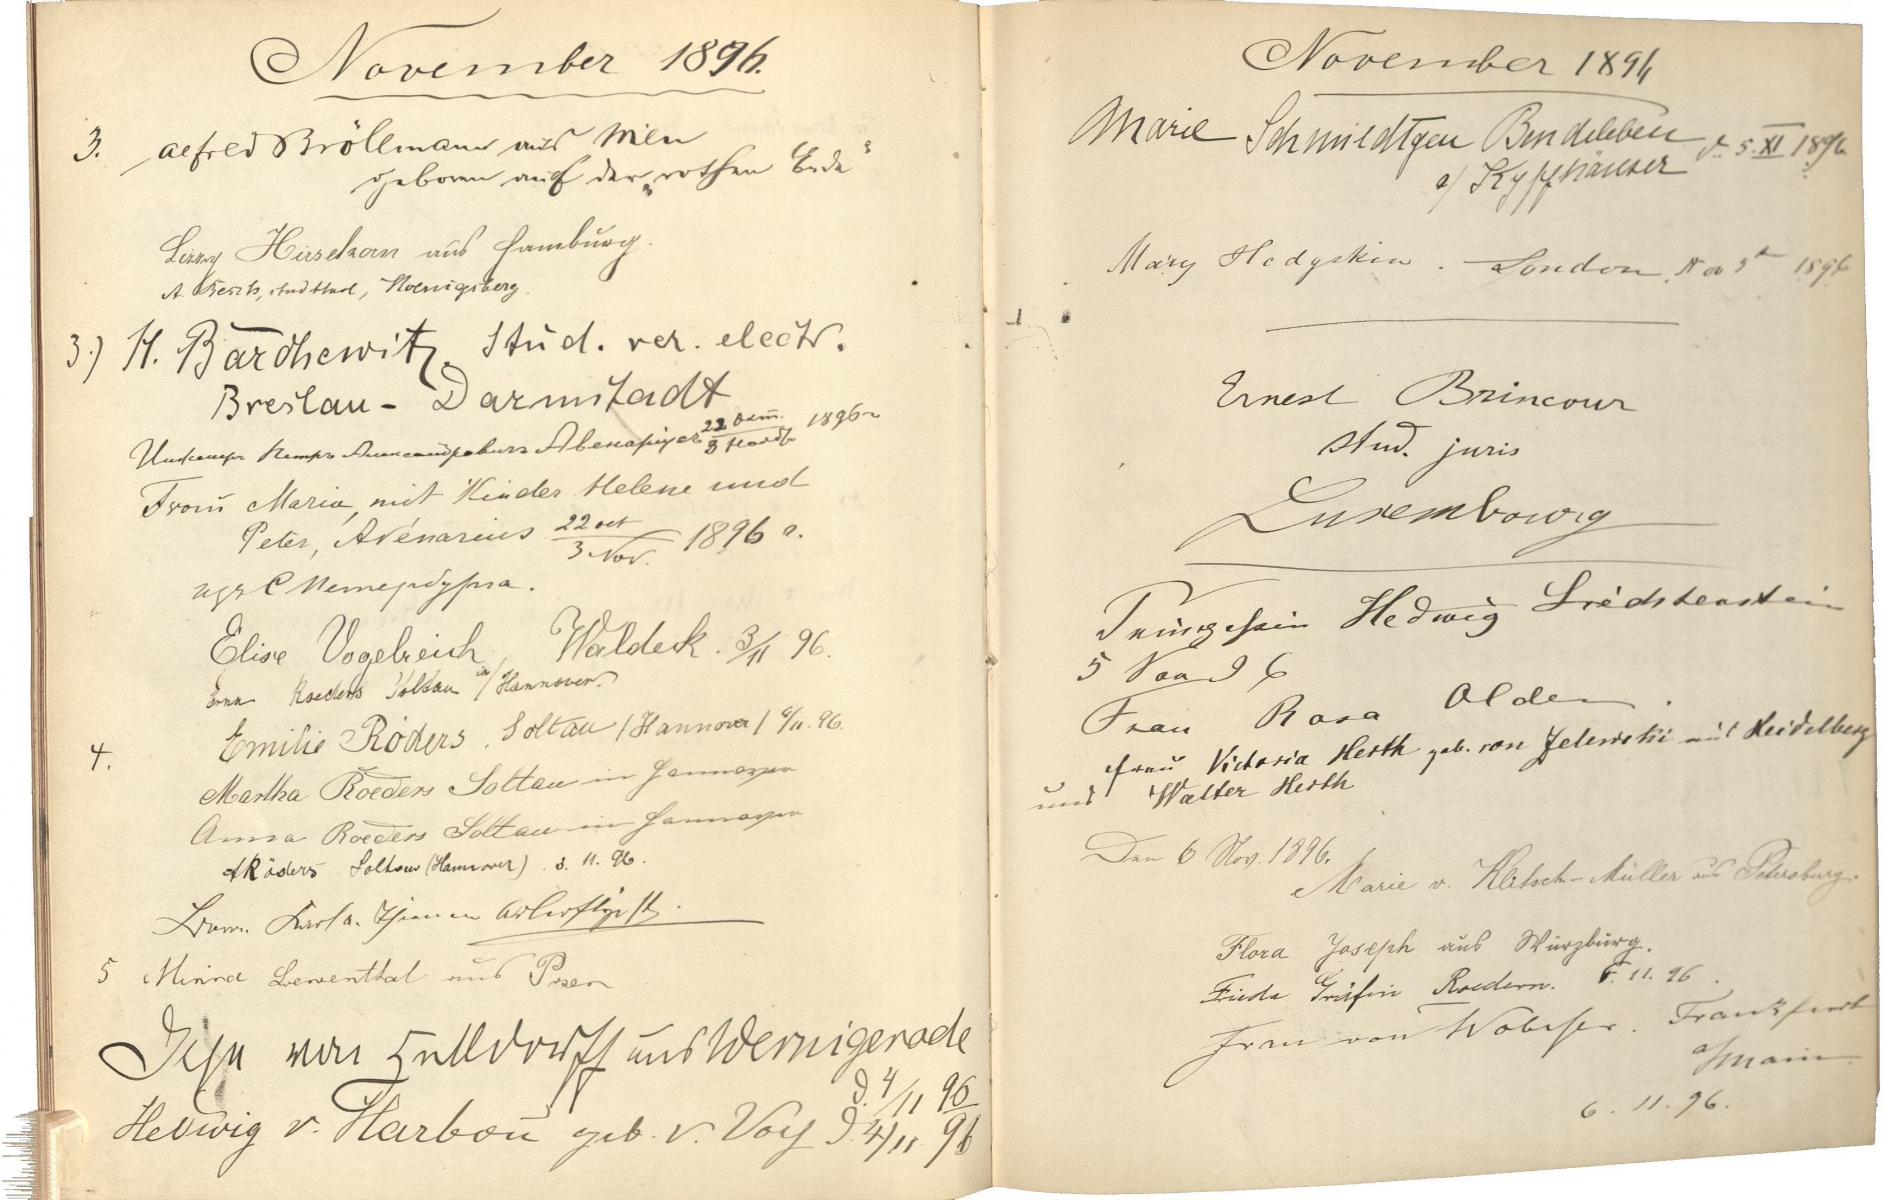 November 1896.
3. Alfred Bröllmann aus Wien
geboren auf der „rothen Erde"
Lizzy Hirsekorn aus Hamburg.
A. stud Koenigsberg.
3.) H. Bardhewitz, Stud. rer. electr.
Breslau - Darmstadt
Инженеръ Петръ Александровичъ Авенаріусъ 22 Окт. / 3 Нояб. 1896 г
Frau Maria, mit Kinder Helene und
Peter, Avenarius 22 oct / 3 Nov. 1896 a.
изъ С Петербурга.
Elise Vogelreich, Waldeck. 3/11 96.
Erna Roeders Soltau in/Hannover.
4. Emilie Röders, Soltau /Hannover/ 4/11. 96.
Martha Roeders Soltau in Hannover
Anna Roeders Soltau in Hannover
A Röders Soltau (Hannover) 3. 11. 96.
5 Minna Lewenthal aus Posen
von Helldorff aus Wernigerode
d. 4/11 96
Hedwig v. Harbou geb. v. Voß d. 4/11 96
November 1896
Marie Schmidtgen Bendeleben d. 5. XI 1896
a/ Kyffhäuser
Mary Hodgskin. London. Nov 5th 1896
Ernest Brincour
stud. juris
Luxembourg
Prinzessin Hedwig Liechtenstein
5 Nov 96
Frau Rosa Olden.
Frau Victoria Herth geb. von Zelewski aus Heidelberg
und Walter Herth
Den 6 Nov. 1896.
Marie v. Klitsch-Müller aus Petersburg.
Flora Joseph aus Würzburg.
Frieda Gräfin Roedern. 6. 11. 96.
Frau von Wobeser. Frankfurt
a/Main.
6. 11. 96.